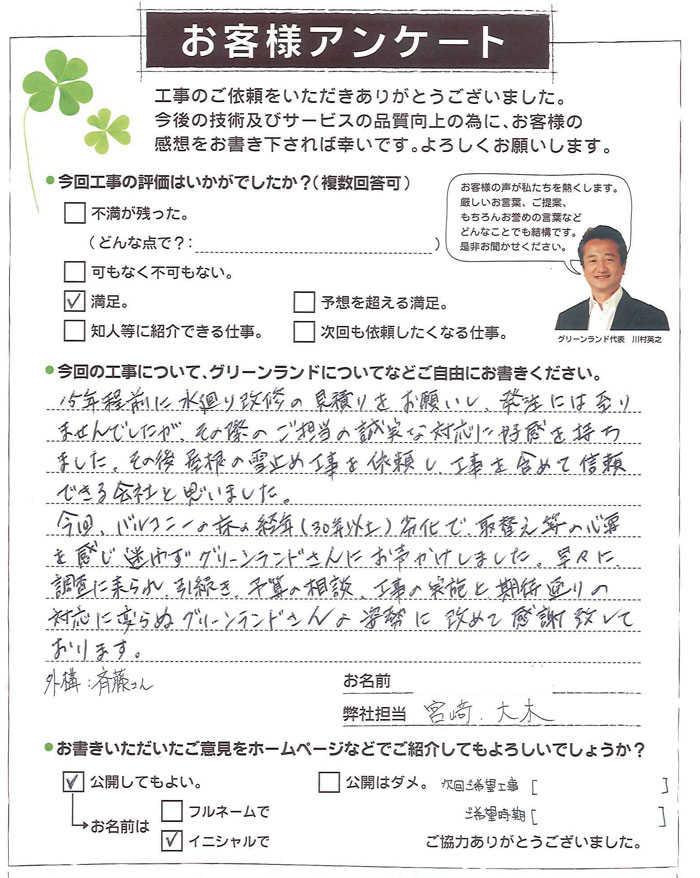 お客様アンケート
工事のご依頼をいただきありがとうございました。
今後の技術及びサービスの品質向上の為に、お客様の
感想をお書き下されば幸いです。よろしくお願いします。
●今回工事の評価はいかがでしたか?(複数回答可)
お客様の声が私たちを熱くします。
厳しいお言葉、ご提案、
もちろんお誉めの言葉など
どんなことでも結構です。
是非お聞かせください。
グリーンランド代表 川村英之
不満が残った。
(どんな点で?: )
可もなく不可もない。
満足。 予想を超える満足。
知人等に紹介できる仕事。 次回も依頼したくなる仕事。
●今回の工事について、グリーンランドについてなどご自由にお書きください。
15年程前に水廻り改修の見積りをお願いし、発注には至り
ませんでしたが、その際のご担当の誠実な対応に好感を持ち
ました。その後屋根の雪止め工事を依頼し、工事を含めて信頼
できる会社と思いました。
今回、バルコニーの床の経年(30年以上)劣化で、取替え等の必要
を感じ迷わずグリーンランドさんにお声かけしました。早々に、
調査に来られ、引続き、予算の相談、工事の実施と期待通りの
対応に変らぬグリーンランドさんの姿勢に改めて感謝致して
おります。
外構:斉藤さん
お名前
弊社担当 宮崎、大木
●お書きいただいたご意見をホームページなどでご紹介してもよろしいでしょうか?
公開してもよい。 公開はダメ。 次回ご希望工事 [ ]
お名前は フルネームで ご希望時期 [ ]
イニシャルで ご協力ありがとうございました。